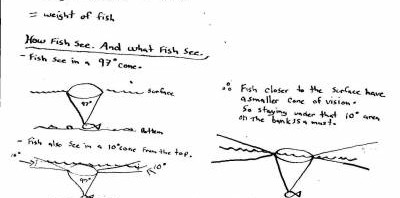 = weight of fish
How Fish See. And what Fish See.
- Fish see in a 97° cone.
surface
97°
Bottom
- Fish also see in a 10° cone from the top.
10°
10°
97°
∴ Fish closer to the surface have
a smaller cone of vision.
So staying under that 10° area
on the bank is a must.